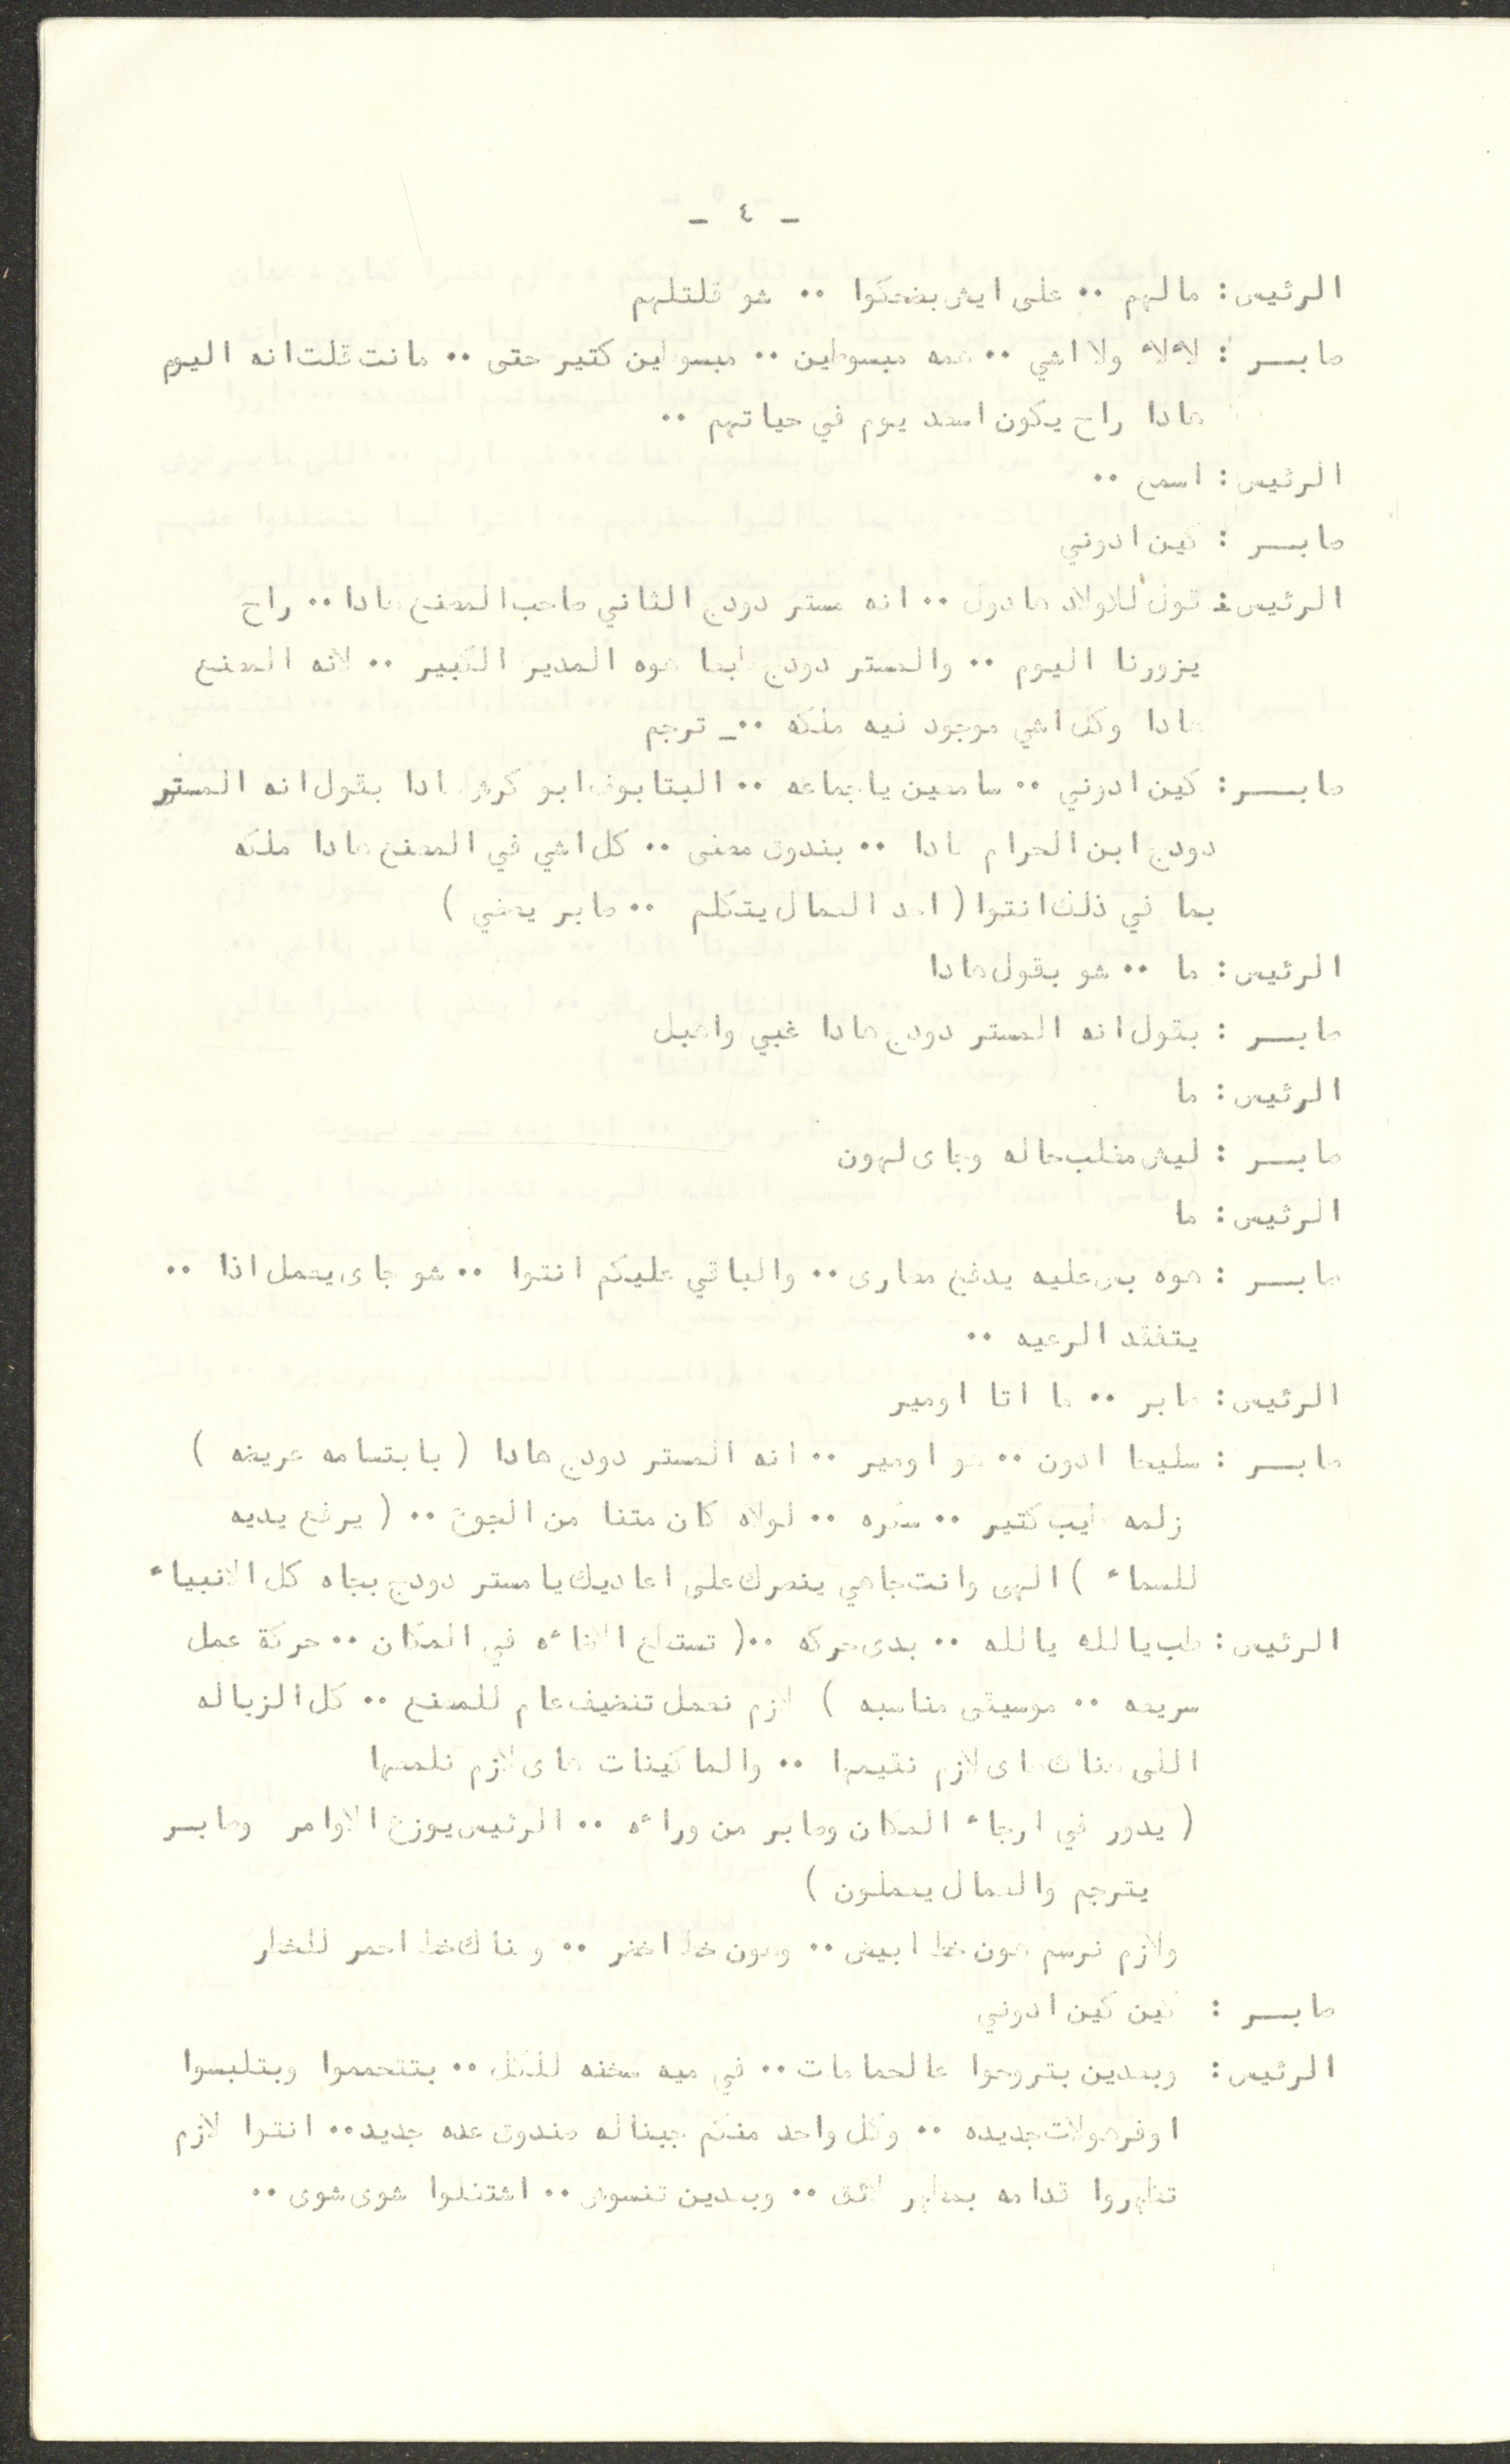 - ٤ -
الرئيس: مالهم .. على ايش بضحكوا .. شو قلتلهم
صابـــر : لاء لاء ولا اشي .. همه مبسوطين .. مبسوطين كتير حتى .. مانت قلت انه اليوم
هادا راح يكون اسعد يوم في حياتهم ..
الرئيس: اسمع ..
صابـــر : كين ادوني
الرئيس: قول للاولاد هادول .. انه مستر دودج الثاني صاحب المصنع هادا .. راح
يزورنا اليوم .. والمستر دودج طبعا هوه المدير الكبير .. لانه المصنع
هادا وكل اشي موجود فيه ملكه .._ ترجم
صابـــر: كين ادوني .. سامعين ياجماعه .. البتابوف ابو كرش هادا بقول انه المستر
دودج ابن الحرام هادا .. بندوق مصفى .. كل اشي في المصنع هادا ملكه
بما في ذلك انتوا (احد العمال يتكلم .. صابر يصغي )
الرئيس: ما .. شو بقول هادا
صابـــر : بقول انه المستر دودج هادا غبي واهبل
الرئيس: ما
صابـــر : ليش مغلب حاله وجاى لهون
الرئيس: ما
صابـــر : هوه بس عليه يدفع مصارى .. والباقي عليكم انتوا .. شو جاى يعمل اذا ..
يتفقد الرعيه ..
الرئيس: صابر .. ما اتا اومير
صابـــر : سليحا ادون .. هو اومير .. انه المستر دودج هادا ( بابتسامه عريضه )
زلمه طيب كتير .. سكره .. لولاه كان متنا من الجوع .. ( يرفع يديه
للسماء ) الهى وانت جاهي ينصرك على اعاديك يا مستر دودج بجاه كل الانبياء
الرئيس: طب يالله يالله .. بدى حركه ..( تسطع الاضاءه في المكان .. حركة عمل
سريعه .. موسيقى مناسبه ) لازم نعمل تنضيف عام للمصنع .. كل الزباله
اللى هناك هاى لازم نقيمها .. والماكينات هاى لازم نلمعها
( يدور في ارجاء المكان وصابر من وراءه .. الرئيس يوزع الاوامر وصابـــر
يترجم والعمال يعملون )
ولازم نرسم هون خط ابيض .. وهون خط اخضر .. وهناك خط احمر للخطر
صابـــر : كين كين ادوني
الرئيس: وبعدين بتروحوا عالحمامات .. في ميه سخنه للكل .. بتتحمموا وبتلبسوا
اوفرهولات جديده .. وكل واحد منكم جبناله صندوق عده جديد .. انتوا لازم
تظهروا قدامه بمظهر لائق .. وبعدين تنسوش .. اشتغلوا شوى شوى ..